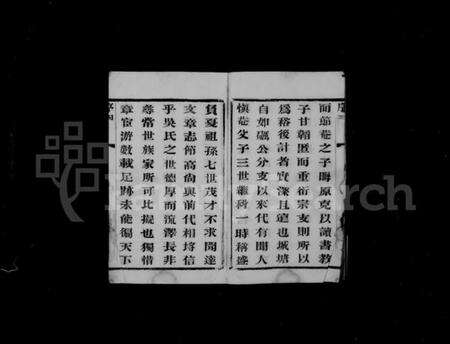 而節菴之子晦原克以讀書教
子甘韜匿而重衍宗支則所以
為裕後計者實深且遠也城塘
自如礪公分支以來代有聞人
慎菴父子三世雖科一時稱盛
貢憂祖孫七世茂才不求聞達
文章志節高尚與前代相埒信
乎吳氏之世德厚而流澤長非
尋常世族家所可比擬也獨惜
章宦游數載足跡未能徧天下
序四